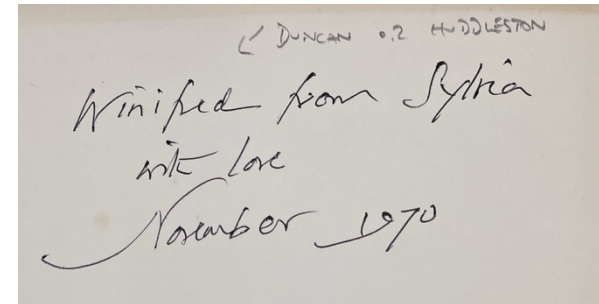 DUNCAN O.2 HUDDLESTON
Winifred from Sylvia
with love
November 1970